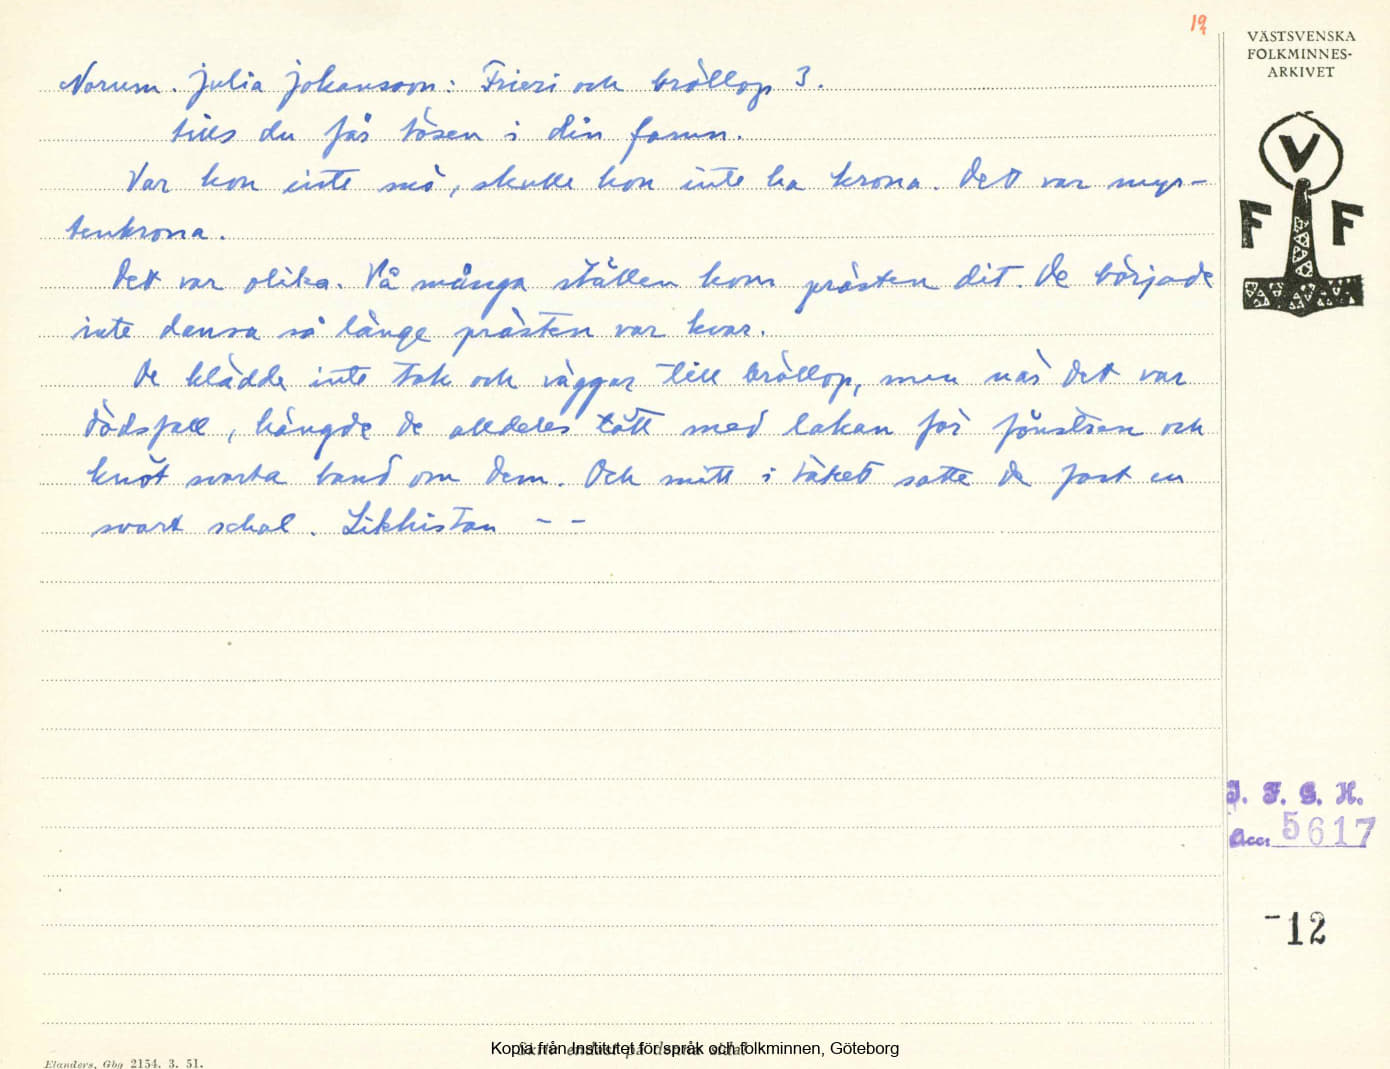 19
VÄSTSVENSKA
FOLKMINNES-
ARKIVET
V
F F
Norum. Julia Johansson: Frieri och bröllop 3.
tills du får tösen i din famn.
Var hon inte mö, skulle hon inte ha krona. Det var myr-
tenkrona.
Det var olika. På många ställen kom prästen dit. De började
inte dansa så länge prästen var kvar.
De klädde inte tak och väggar till bröllop, men när det var
dödsfall, hängde de alldeles tätt med lakan för fönstren och
knöt svarta band om dem. Och mitt i taket satte de fast en
svart schal. Likkistan - -
I. F. G. H.
Acc. 5617
-12
Elanders, Gbg 2154. 3. 51.
Skriv endast på denna sida!
Kopia från Institutet för språk och folkminnen, Göteborg